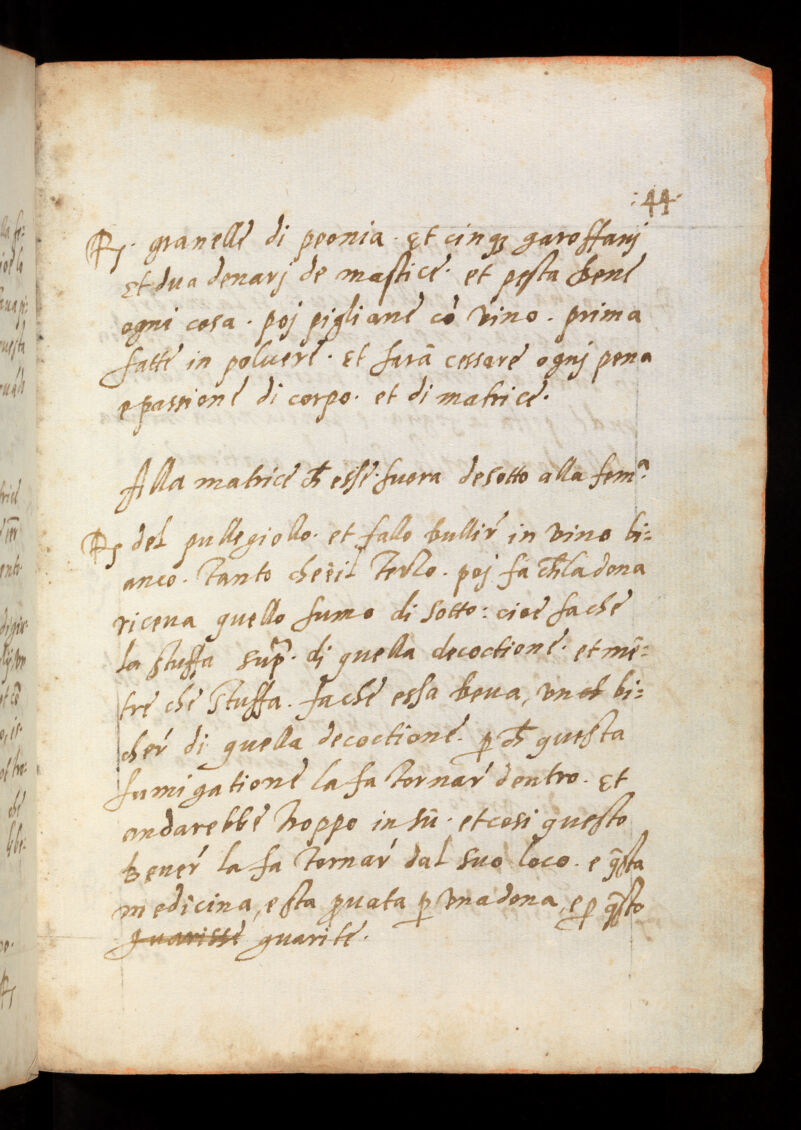 ·44·
℞. granelle di peonia. Et cinqꝫ garoffanj
Et dua denarj de mastice. et pesta bene
ogni cosa. poj pigliane cō vino. prima
fatte in poluere. Et farā cessare ognj pena
e passione di corpo. et di matrice.
Alla matrice ch̄ esse fuora desotto alla fem.ª
℞ del pullegiollo. et fallo bullir in vino bi=
anco. Tanto che il Terzo. poj fa ch̄ la dona
riceua quello fumo di sotto: cioe fache
la stuffa supª. dj quella decoctione. et mē=
tre che stuffa. fache essa beua, un bi=
cher di quella decoctione. ꝑ ch̄ questa
fumigatione la fa Tornar dentro. Et
andarebbe troppo in sū. et cosi questo
bener la fa Tornar dal suo loco. e q̄sta
medicina, e sta ꝓuata ꝑ una dona, e ꝑ q̄sto
guarisse guarite.